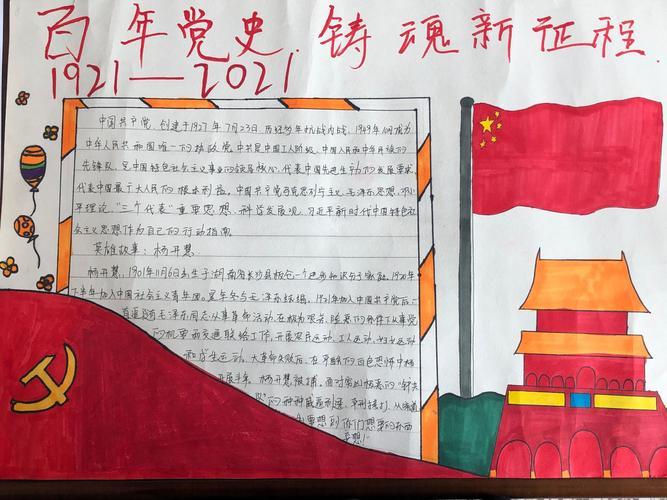 百年党史 铸魂新征程
1921—2021
中国共产党创建于1927年7月23日 历经抗战内战，1949年10月成为
中华人民共和国唯一的执政党 中共是中国工人阶级、中国人民和中华民族的
先锋队，是中国特色社会主义事业的领导核心，代表中国先进生产力的发展要求，
代表中国最广大人民的根本利益。中国共产党马克思列宁主义、毛泽东思想、邓小
平理论、“三个代表”重要思想、科学发展观、习近平新时代中国特色社
会主义思想作为自己的行动指南
英雄故事：杨开慧
杨开慧，1901年11月6日出生于湖南省长沙县板仓一个进步知识分子家庭，1920年
下半年加入中国社会主义青年团。是年冬与毛泽东结婚。1921年加入中国共产党后一
直追随毛泽东同志从事革命活动，在极为艰苦、的条件下从事党
的机要和交通联络工作，开展农民运动、工人运动、妇女运动
和学生运动。大革命失败后，在严酷的白色恐怖中
开展斗争。杨开慧被捕，面对
的种种威逼利诱、严刑拷打，从
要想到你们想要的东西